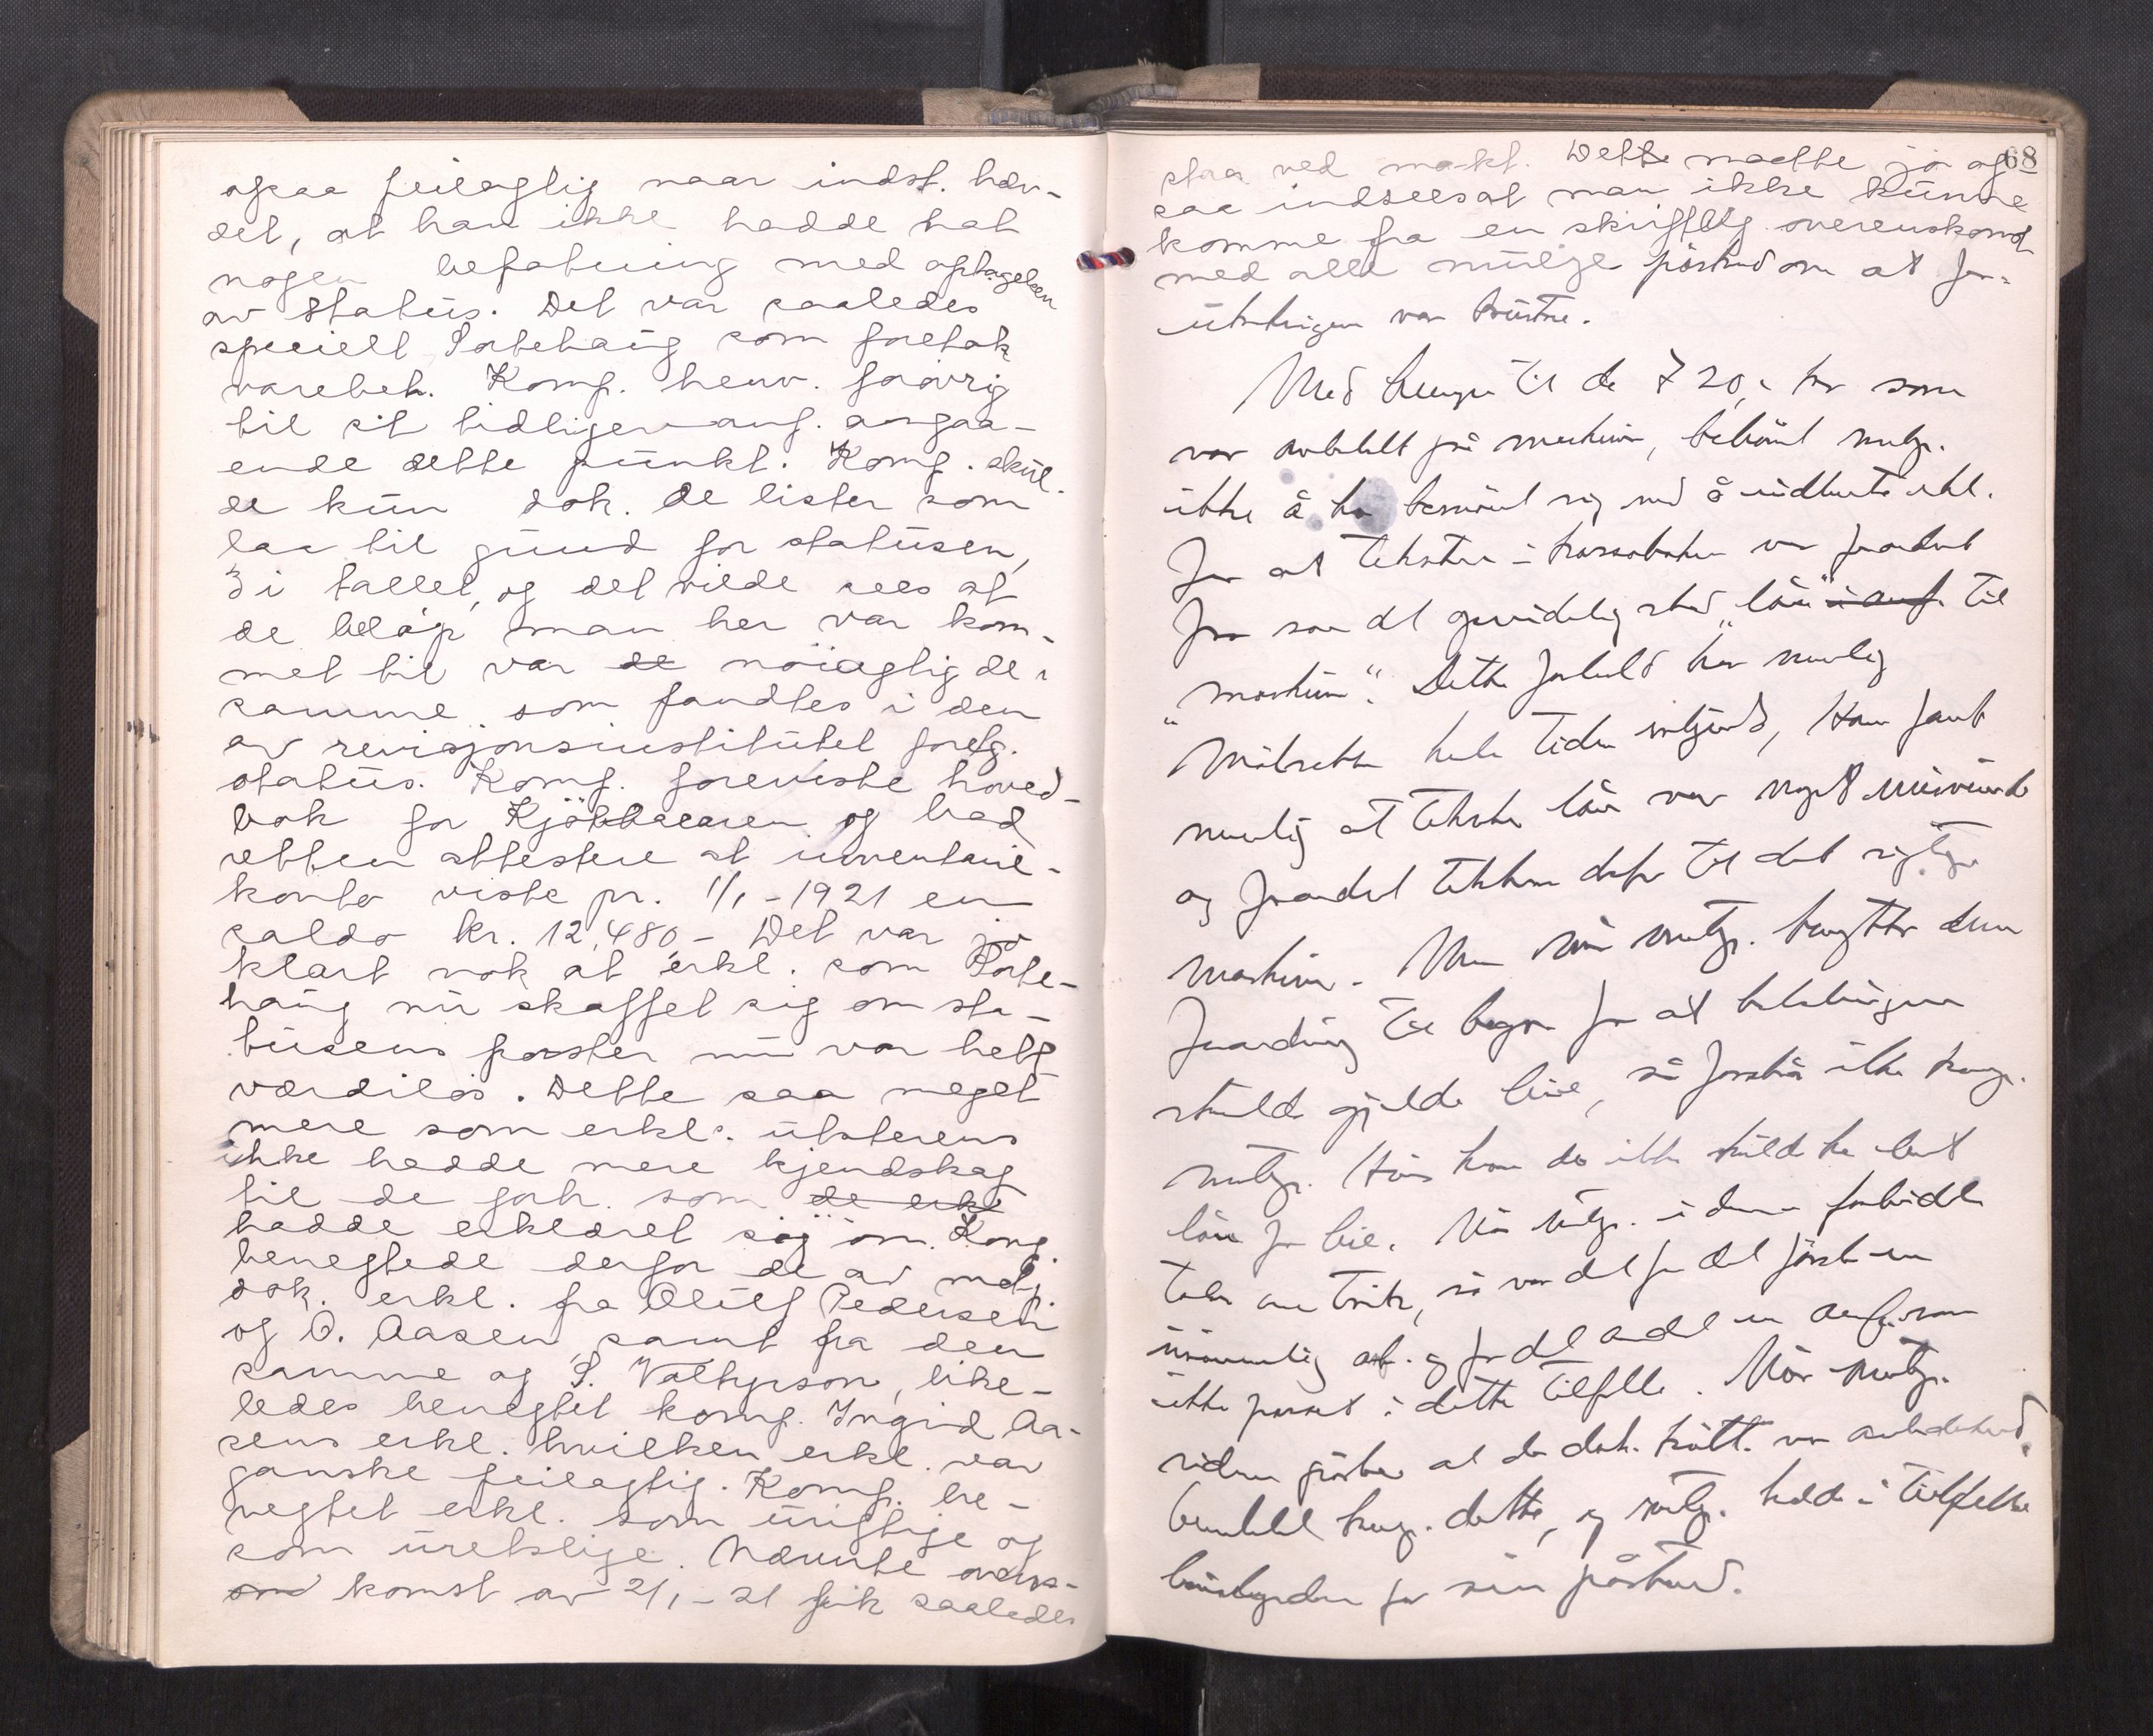 ogsaa feilagtig naar indst. hæv-
det, at han ikke hadde hat
nogen befatning med optagelsen
av status. Det var saaledes
specielt Portehaug som foretok
varebeh. Komp. henv. forövrig
til sit tidligere anf. angaa-
ende dette punkt. Komp. skul-
de kun dok. de lister som
laa til grund for statusen,
3 i tallet, og det vilde sees at
de belöp man her var kom-
met til var de nöiagtig de
samme som fandtes i den
av revisjonsinstitutet foretg.
status. Komp. foreviste hoved-
bok for Kjöbbacaren og bad
retten attestere at inventarie-
konto viste pr. 1/1 - 1921 en
saldo kr. 12,480,- Det var jo
klart nok at erkl. som Porte-
haug nu skaffet sig om sta-
tusens poster nu var helt
værdilös. Dette saa meget
mere som erkl. utsterens
ikke hadde mere kjendskap
til de forh. som de erkl
hadde erklæret sig om. Komp.
benegtede derfor de av motp.
dok. erkl. fra Oluf Pedersen
og O. Aasen, samt fra den
samme og S. Valhysson, like-
ledes benegtet komp. Ingrid Aa-
sens erkl. hvilken erkl. var
ganske feilagtig. Komp. be-
negtet erkl. som urigtige og
som uretslige. Nævnte overens-
om komst av 2/1 - 21 fik saaledes
68
staa ved makt. Dette maatte jo og
saa indsees at man ikke kunne
komme fra en skriftlig overenskomst
med alle mulige påstand om at for-
utsetningen var bristne.
Med hensyn til de 720,- kr som
var utbetalt på maskin, behövet motp.
ikke å ha bemöiet sig med å indhente erkl.
for at teksten i kassaboken var forandret
fra som det oprindelig stod „lön" i anf. til
"maskin". Dette forhold har nemlig
Målsetta hele tiden vitgaad, Han fant
nemlig at teksten lön var noget misvisende
og forandret teksten derfor til det rigtige
maskin. Men når motp. benytter denne
forandring til bevis for at betalingen
skulde gjelde bil, så forstår ikke komp.
motp. Hvis han da ikke skulde ha
lön for bil. Når motp. i denne forbindelse
taler om trik, så var det for det förste en
usömmelig og for det andet en som
ikke passet i dette tilfelle. Når motp.
siden påstår at de dok. kvitt. var antedatert,
benektet komp. dette, og motp. hadde i tilfelle
bevisbyrden for sin påstand.